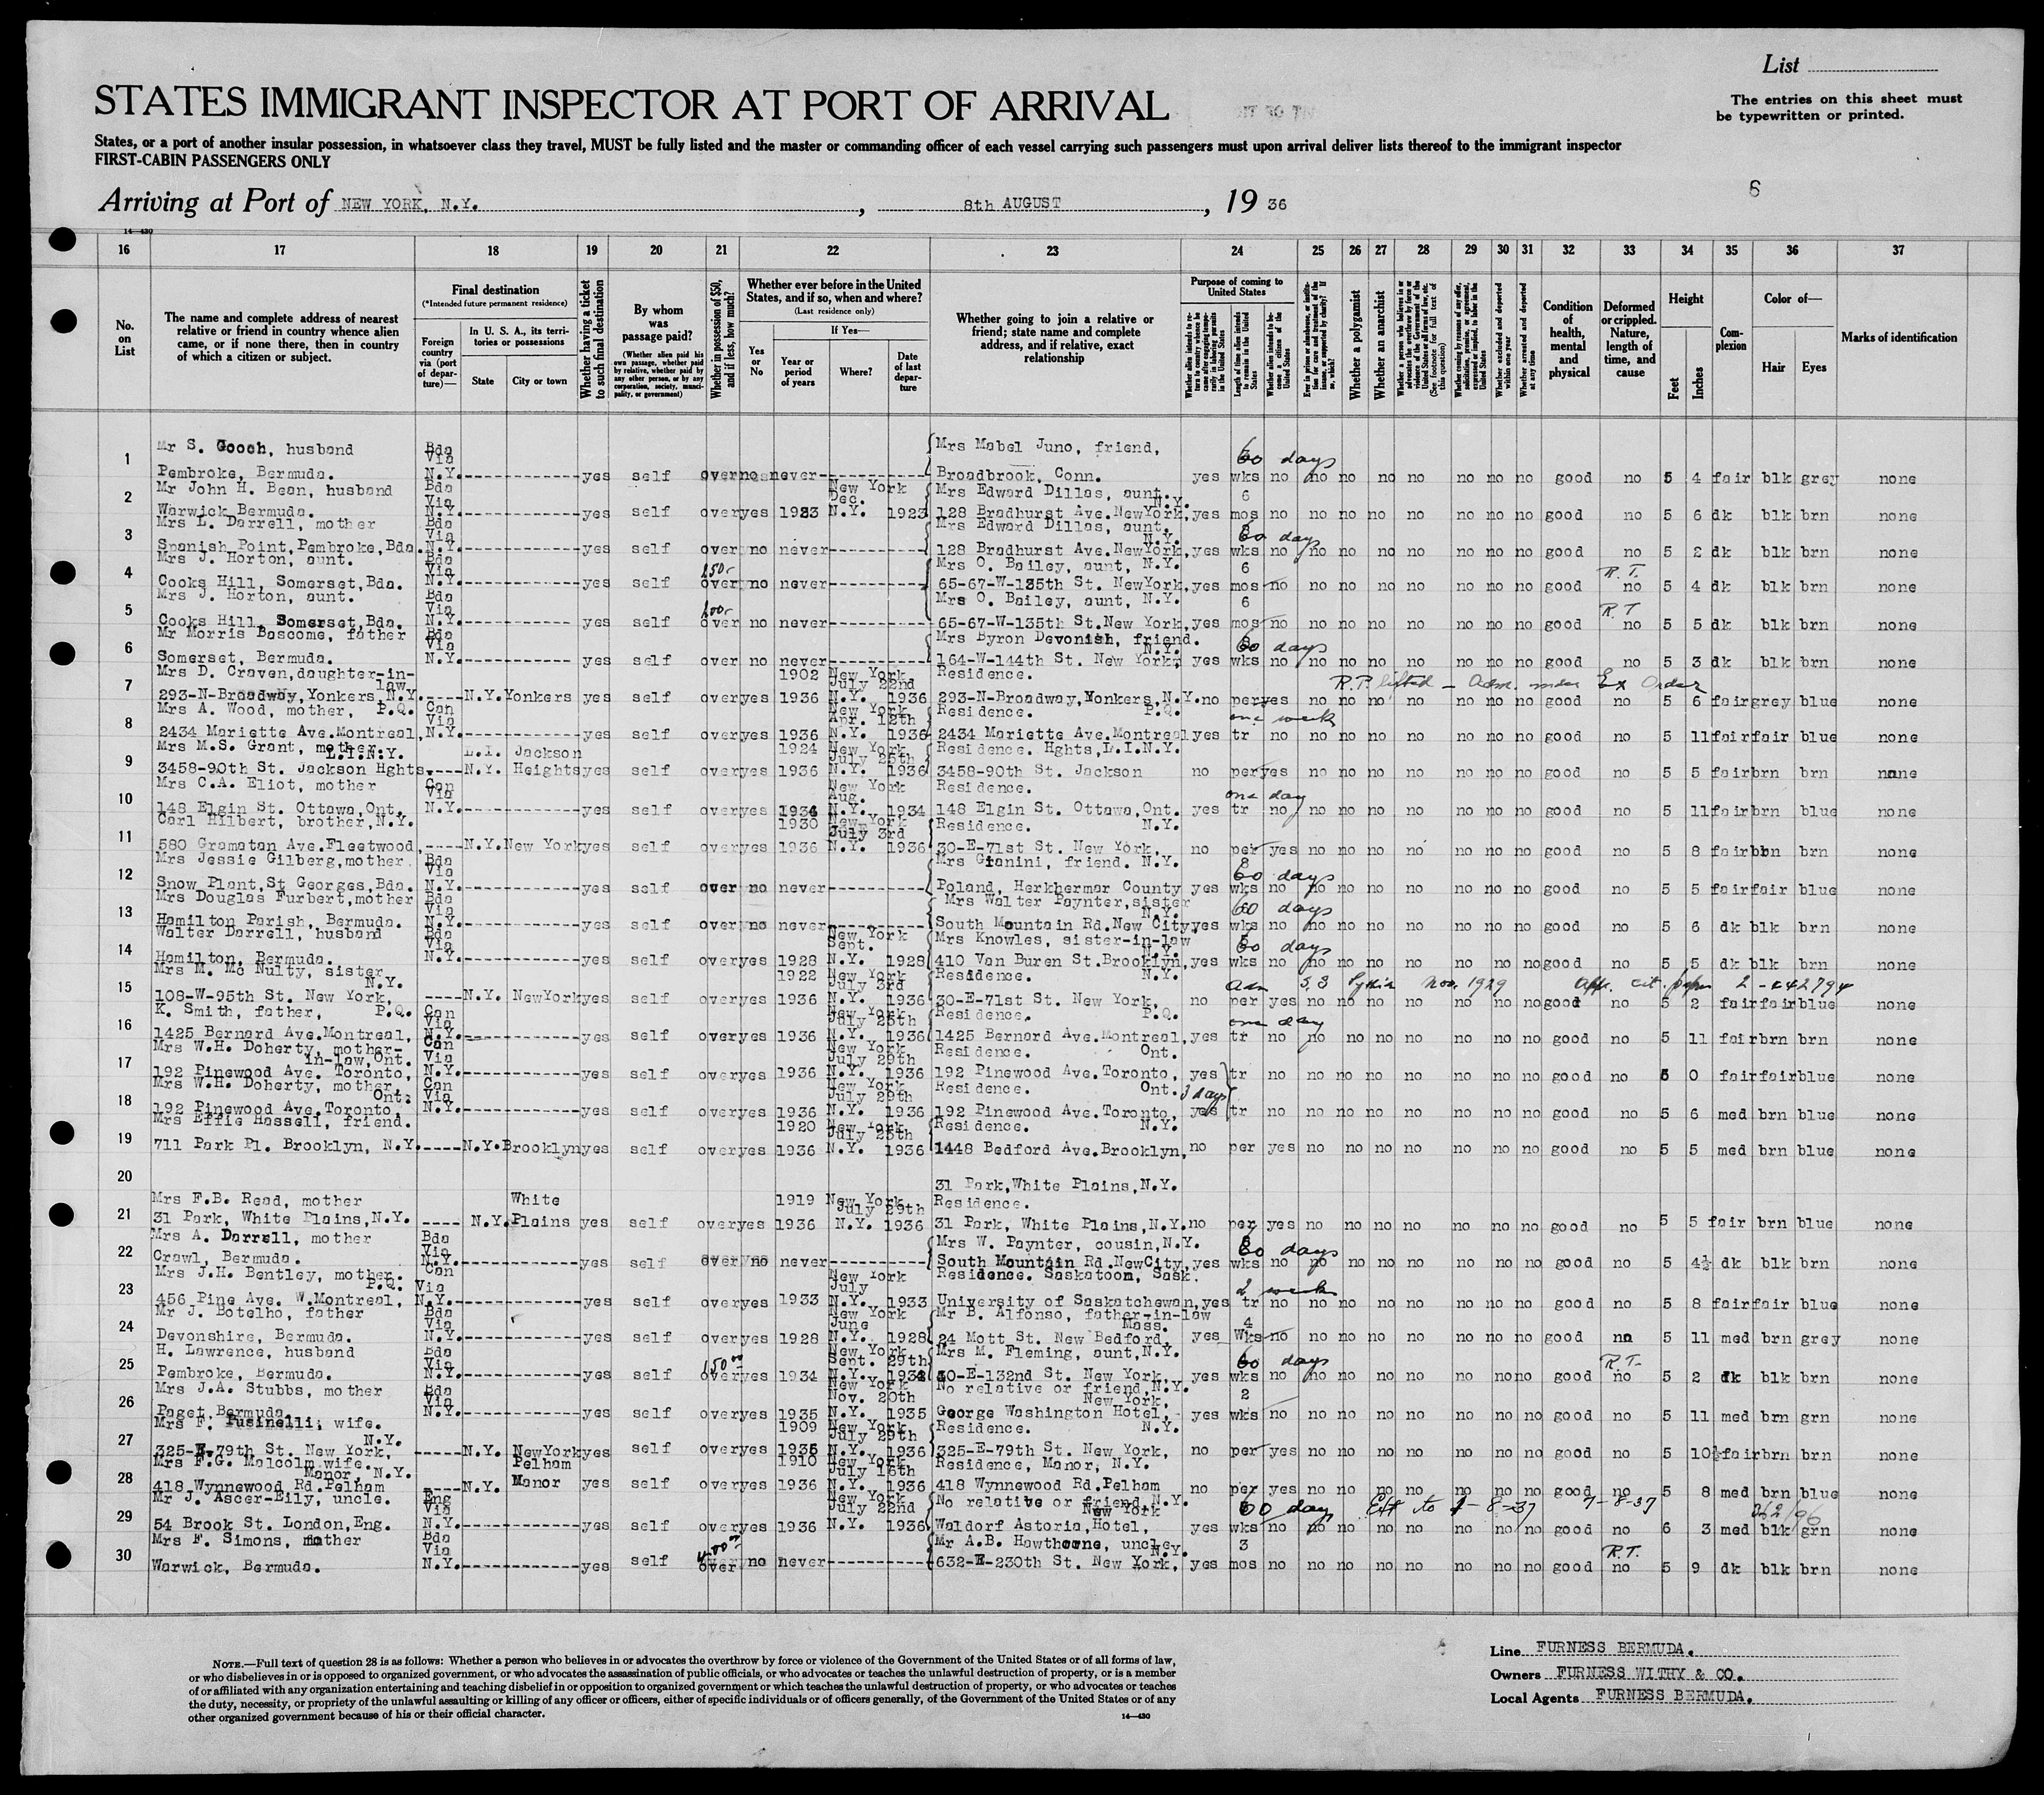 List
The entries on this sheet must
be typewritten or printed.
STATES IMMIGRANT INSPECTOR AT PORT OF ARRIVAL
States, or a port of another insular possession, in whatsoever class they travel, MUST be fully listed and the master or commanding officer of each vessel carrying such passengers must upon arrival deliver lists thereof to the immigrant inspector
FIRST-CABIN PASSENGERS ONLY
Arriving at Port of NEW YORK, N.Y. , 8th AUGUST , 19 36
14—430
16 17 18 19 20 21 22 23 24 25 26 27 28 29 30 31 32 33 34 35 36 37
No. on List
The name and complete address of nearest relative or friend in country whence alien came, or if none there, then in country of which a citizen or subject.
Final destination
(*Intended future permanent residence)
Foreign country via (port of departure)—
In U. S. A., its territories or possessions
State
City or town
Whether having a ticket to such final destination
By whom was passage paid?
(Whether alien paid his own passage, whether paid by relative, whether paid by any other person, or by any corporation, society, municipality, or government)
Whether in possession of $50, and if less, how much?
Whether ever before in the United States, and if so, when and where?
(Last residence only)
Yes or No
If Yes—
Year or period of years
Where?
Date of last departure
Whether going to join a relative or friend; state name and complete address, and if relative, exact relationship
Purpose of coming to United States
Length of time alien intends to remain in the United States
Whether alien intends to become a citizen of the United States
Whether a polygamist
Whether an anarchist
(See footnote for full text of this question)
Whether excluded and deported within one year
Whether arrested and deported at any time
Condition of health, mental and physical
Deformed or crippled. Nature, length of time, and cause
Height
Feet
Inches
Complexion
Color of—
Hair
Eyes
Marks of identification
1 Mr S. Gooch, husband Pembroke, Bermuda. Bda Via N.Y. yes self over no never Mrs Mabel Juno, friend, Broadbrook, Conn. yes 60 days wks no no no no no no no no good no 5 4 fair blk grey none
2 Mr John H. Bean, husband Warwick Bermuda. Bda Via N.Y. yes self over yes 1923 New York Dec. N.Y. 1923 Mrs Edward Dillas, aunt. N.Y. 128 Bradhurst Ave. NewYork, yes 6 mos no no no no no no no no good no 5 6 dk blk brn none
3 Mrs L. Darrell, mother Spanish Point, Pembroke, Bda. Bda Via N.Y. yes self over no never Mrs Edward Dillas, aunt. N.Y. 128 Bradhurst Ave. NewYork, yes 60 days wks no no no no no no no no good no 5 2 dk blk brn none
4 Mrs J. Horton, aunt. Cooks Hill, Somerset, Bda. Bda Via N.Y. yes self 150- over no never Mrs O. Bailey, aunt, N.Y. 65-67-W-135th St. NewYork, yes 6 mos no no no no no no no no good R.T. no 5 4 dk blk brn none
5 Mrs J. Horton, aunt. Cooks Hill, Somerset, Bda. Bda Via N.Y. yes self 100- over no never Mrs O. Bailey, aunt, N.Y. 65-67-W-135th St. New York, yes 6 mos no no no no no no no no good R.T no 5 5 dk blk brn none
6 Mr Morris Bascome, father Somerset, Bermuda. Bda Via N.Y. yes self over no never Mrs Byron Devonish, friend. N.Y. 164-W-144th St. New York, yes 60 days wks no no no no no no no no good no 5 3 dk blk brn none
7 Mrs D. Craven, daughter-in-law 293-N-Broadway, Yonkers N.Y. N.Y. Yonkers yes self over yes 1902 1936 New York July 22nd N.Y. 1936 Residence. 293-N-Broadway, Yonkers, N.Y. no per yes no no no no no no no good no 5 6 fair grey blue none
R.P. lifted - Adm. under Ex Order
8 Mrs A. Wood, mother, P.Q. 2434 Mariette Ave. Montreal, Can Via N.Y. yes self over yes 1936 New York Apr. 12th N.Y. 1936 Residence. P.Q. 2434 Mariette Ave. Montreal yes one week tr no no no no no no no no good no 5 11 fair fair blue none
9 Mrs M.S. Grant, mother. L.I.N.Y. 3458-90th St. Jackson Hghts. L.I. N.Y. Jackson Heights yes self over yes 1924 1936 New York July 25th N.Y. 1936 Residence. Hghts, L.I.N.Y. 3458-90th St. Jackson no per yes no no no no no no no good no 5 5 fair brn brn none
10 Mrs C.A. Eliot, mother 148 Elgin St. Ottawa, Ont. Can Via N.Y. yes self over yes 1934 New York Aug. N.Y. 1934 Residence. 148 Elgin St. Ottawa, Ont. yes one day tr no no no no no no no no good no 5 11 fair brn blue none
11 Carl Hilbert, brother, N.Y. 580 Gramatan Ave. Fleetwood, N.Y. New York yes self over yes 1930 1936 New York July 3rd N.Y. 1936 Residence. N.Y. 30-E-71st St. New York, no per yes no no no no no no no good no 5 8 fair brn brn none
12 Mrs Jessie Gilberg, mother. Snow Plant, St Georges, Bda. Bda Via N.Y. yes self over no never Mrs Gianini, friend. N.Y. Poland, Herkhermar County yes 60 days wks no no no no no no no no good no 5 5 fair fair blue none
13 Mrs Douglas Furbert, mother Hamilton Parish, Bermuda. Bda Via N.Y. yes self over no never Mrs Walter Paynter, sister N.Y. South Mountain Rd. New City yes 60 days wks no no no no no no no no good no 5 6 dk blk brn none
14 Walter Darrell, husband Hamilton, Bermuda. Bda Via N.Y. yes self over yes 1928 New York Sept. N.Y. 1928 Mrs Knowles, sister-in-law N.Y. 410 Van Buren St. Brooklyn, yes 60 days wks no no no no no no no no good no 5 5 dk blk brn none
15 Mrs M. Mc Nulty, sister N.Y. 108-W-95th St. New York, N.Y. NewYork yes self over yes 1922 1936 New York July 3rd N.Y. 1936 Residence. N.Y. 30-E-71st St. New York, no per yes no no no no no no no good no 5 2 fair fair blue none
Adm S.S. Nov. 1929
16 K. Smith, father, P.Q. 1425 Bernard Ave. Montreal, Can Via N.Y. yes self over yes 1936 New York July 25th N.Y. 1936 Residence. P.Q. 1425 Bernard Ave. Montreal, yes one day tr no no no no no no no no good no 5 11 fair brn brn none
17 Mrs W.H. Doherty, mother-in-law, Ont. 192 Pinewood Ave. Toronto, Can Via N.Y. yes self over yes 1936 New York July 29th N.Y. 1936 Residence. Ont. 192 Pinewood Ave. Toronto, yes tr no no no no no no no no good no 5 0 fair fair blue none
18 Mrs W.H. Doherty, mother, Ont. 192 Pinewood Ave. Toronto, Can Via N.Y. yes self over yes 1936 New York July 29th N.Y. 1936 Residence. Ont. 192 Pinewood Ave. Toronto, 3 days yes tr no no no no no no no no good no 5 6 med brn blue none
19 Mrs Effie Hassell, friend. 711 Park Pl. Brooklyn, N.Y. N.Y. Brooklyn yes self over yes 1920 1936 New York July 25th N.Y. 1936 Residence. N.Y. 1448 Bedford Ave. Brooklyn, no per yes no no no no no no no good no 5 5 med brn blue none
20 31 Park, White Plains, N.Y.
21 Mrs F.B. Read, mother 31 Park, White Plains, N.Y. N.Y. White Plains yes self over yes 1919 1936 New York July 29th N.Y. 1936 Residence. 31 Park, White Plains, N.Y. no per yes no no no no no no no good no 5 5 fair brn blue none
22 Mrs A. Darrell, mother Crawl, Bermuda. Bda Via N.Y. yes self over no never Mrs W. Paynter, cousin, N.Y. South Mountain Rd. NewCity, yes 60 days wks no no no no no no no no good no 5 4½ dk blk brn none
23 Mrs J.H. Bentley, mother. P.Q. 456 Pine Ave. W. Montreal, Can Via N.Y. yes self over yes 1933 New York July N.Y. 1933 Residence. Saskatoon, Sask. University of Saskatchewan, yes 2 weeks tr no no no no no no no no good no 5 8 fair fair blue none
24 Mr J. Botelho, father Devonshire, Bermuda. Bda Via N.Y. yes self over yes 1928 New York June N.Y. 1928 Mr B. Alfonso, father-in-law Mass. 24 Mott St. New Bedford, yes 4 Wks no no no no no no no no good no 5 11 med brn grey none
25 H. Lawrence, husband Pembroke, Bermuda. Bda Via N.Y. yes self 150 00 over yes 1934 New York Sept. 29th N.Y. 1934 Mrs M. Fleming, aunt, N.Y. 30-E-132nd St. New York, yes 60 days wks no no no no no no no no good R.T. no 5 2 dk blk brn none
26 Mrs J.A. Stubbs, mother Paget Bermuda. Bda Via N.Y. yes self over yes 1935 New York Nov. 20th N.Y. 1935 No relative or friend, N.Y. New York, George Washington Hotel, yes 2 wks no no no no no no no no good no 5 11 med brn grn none
27 Mrs F. Fusinelli, wife. N.Y. 325-E-79th St. New York, N.Y. NewYork yes self over yes 1909 1936 New York July 29th N.Y. 1936 Residence. N.Y. 325-E-79th St. New York, no per yes no no no no no no no good no 5 10½ fair brn brn none
28 Mrs F.G. Malcolm wife. Manor, N.Y. 418 Wynnewood Rd. Pelham N.Y. Pelham Manor yes self over yes 1910 1936 New York July 16th N.Y. 1936 Residence, Manor, N.Y. 418 Wynnewood Rd. Pelham no per yes no no no no no no no good no 5 8 med brn blue none
29 Mr J. Ascer-Bily, uncle. 54 Brook St. London, Eng. Eng Via N.Y. yes self over yes 1936 New York July 22nd N.Y. 1936 No relative or friend, N.Y. New York Waldorf Astoria, Hotel, yes 60 days wks no no no no no no no no good no 6 3 med blk grn none
Ext to 1-8-37
30 Mrs F. Simons, mother Warwick, Bermuda. Bda Via N.Y. yes self 400 00 over no never Mr A.B. Hawthorne, uncle N.Y. 632-E-230th St. New York, yes 3 mos no no no no no no no no good R.T. no 5 9 dk blk brn none
NOTE.—Full text of question 28 is as follows: Whether a person who believes in or advocates the overthrow by force or violence of the Government of the United States or of all forms of law,
or who disbelieves in or is opposed to organized government, or who advocates the assassination of public officials, or who advocates or teaches the unlawful destruction of property, or is a member
of or affiliated with any organization entertaining and teaching disbelief in or opposition to organized government or which teaches the unlawful destruction of property, or who advocates or teaches
the duty, necessity, or propriety of the unlawful assaulting or killing of any officer or officers, either of specific individuals or of officers generally, of the Government of the United States or of any
other organized government because of his or their official character.
14—430
Line FURNESS BERMUDA.
Owners FURNESS WITHY & CO.
Local Agents FURNESS BERMUDA.